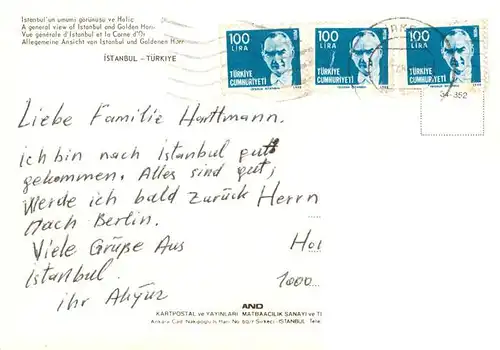 İstanbul'un umumi görünüşü ve Haliç
A general view of Istanbul and Golden Horn
Vue générale d'Istanbul et la Corne d'Or
Allgemeine Ansicht von Istanbul und Goldenen Horn
İSTANBUL - TÜRKİYE
100 LIRA
TÜRKİYE CUMHURİYETİ
100 LIRA
TÜRKİYE CUMHURİYETİ
100 LIRA
TÜRKİYE CUMHURİYETİ
34-352
Liebe Familie Harttmann.
ich bin nach istanbul gutt
gekommen. Alles sind gut,
Werde ich bald zurück Herrn
Nach Berlin.
Viele Grüße Aus
istanbul.
ihr
1000
AND
KARTPOSTAL ve YAYINLARI MATBAACILIK SANAYİ ve Tİ
Ankara Cad. Nakipoğlu Hanı No. 60/7 Sirkeci - İSTANBUL Tele